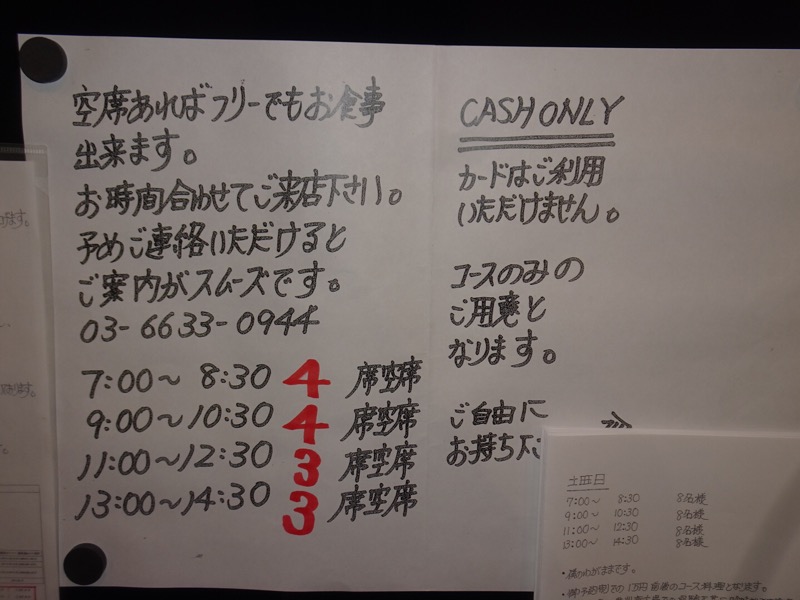 空席あればフリーでもお食事
出来ます。
お時間合わせてご来店下さい。
予めご連絡いただけると
ご案内がスムーズです。
03-6633-0944
7:00〜 8:30 4 席空席
9:00〜10:30 4 席空席
11:00〜12:30 3 席空席
13:00〜14:30 3 席空席
CASH ONLY
カードはご利用
いただけません。
コースのみの
ご用意と
なります。
ご自由に
お持ち下
土曜日
7:00〜 8:30 8名様
9:00〜 10:30 8名様
11:00〜 12:30 8名様
13:00〜 14:30 8名様